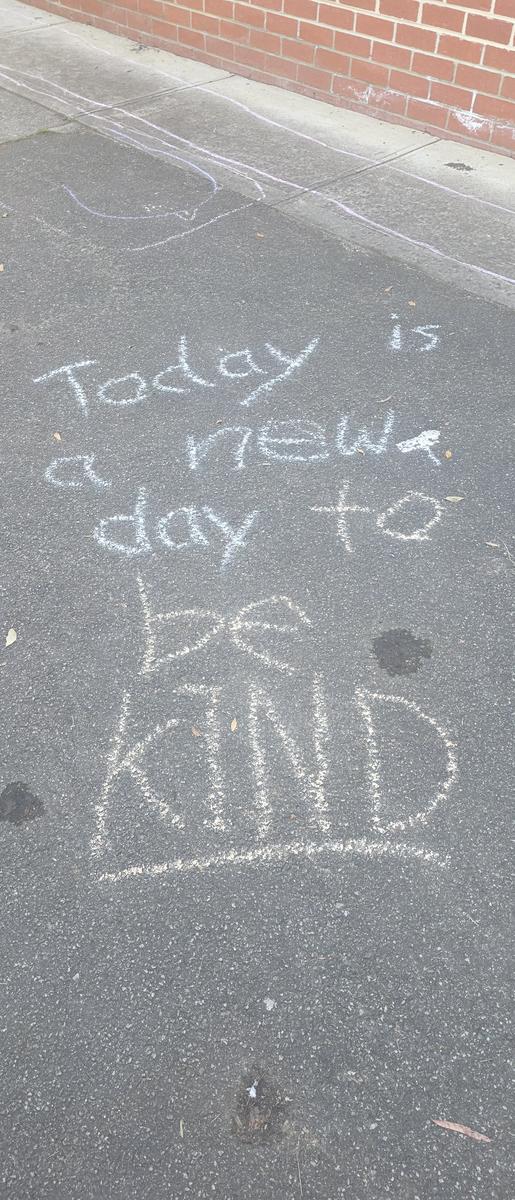 Today is
a new
day to
be
KIND